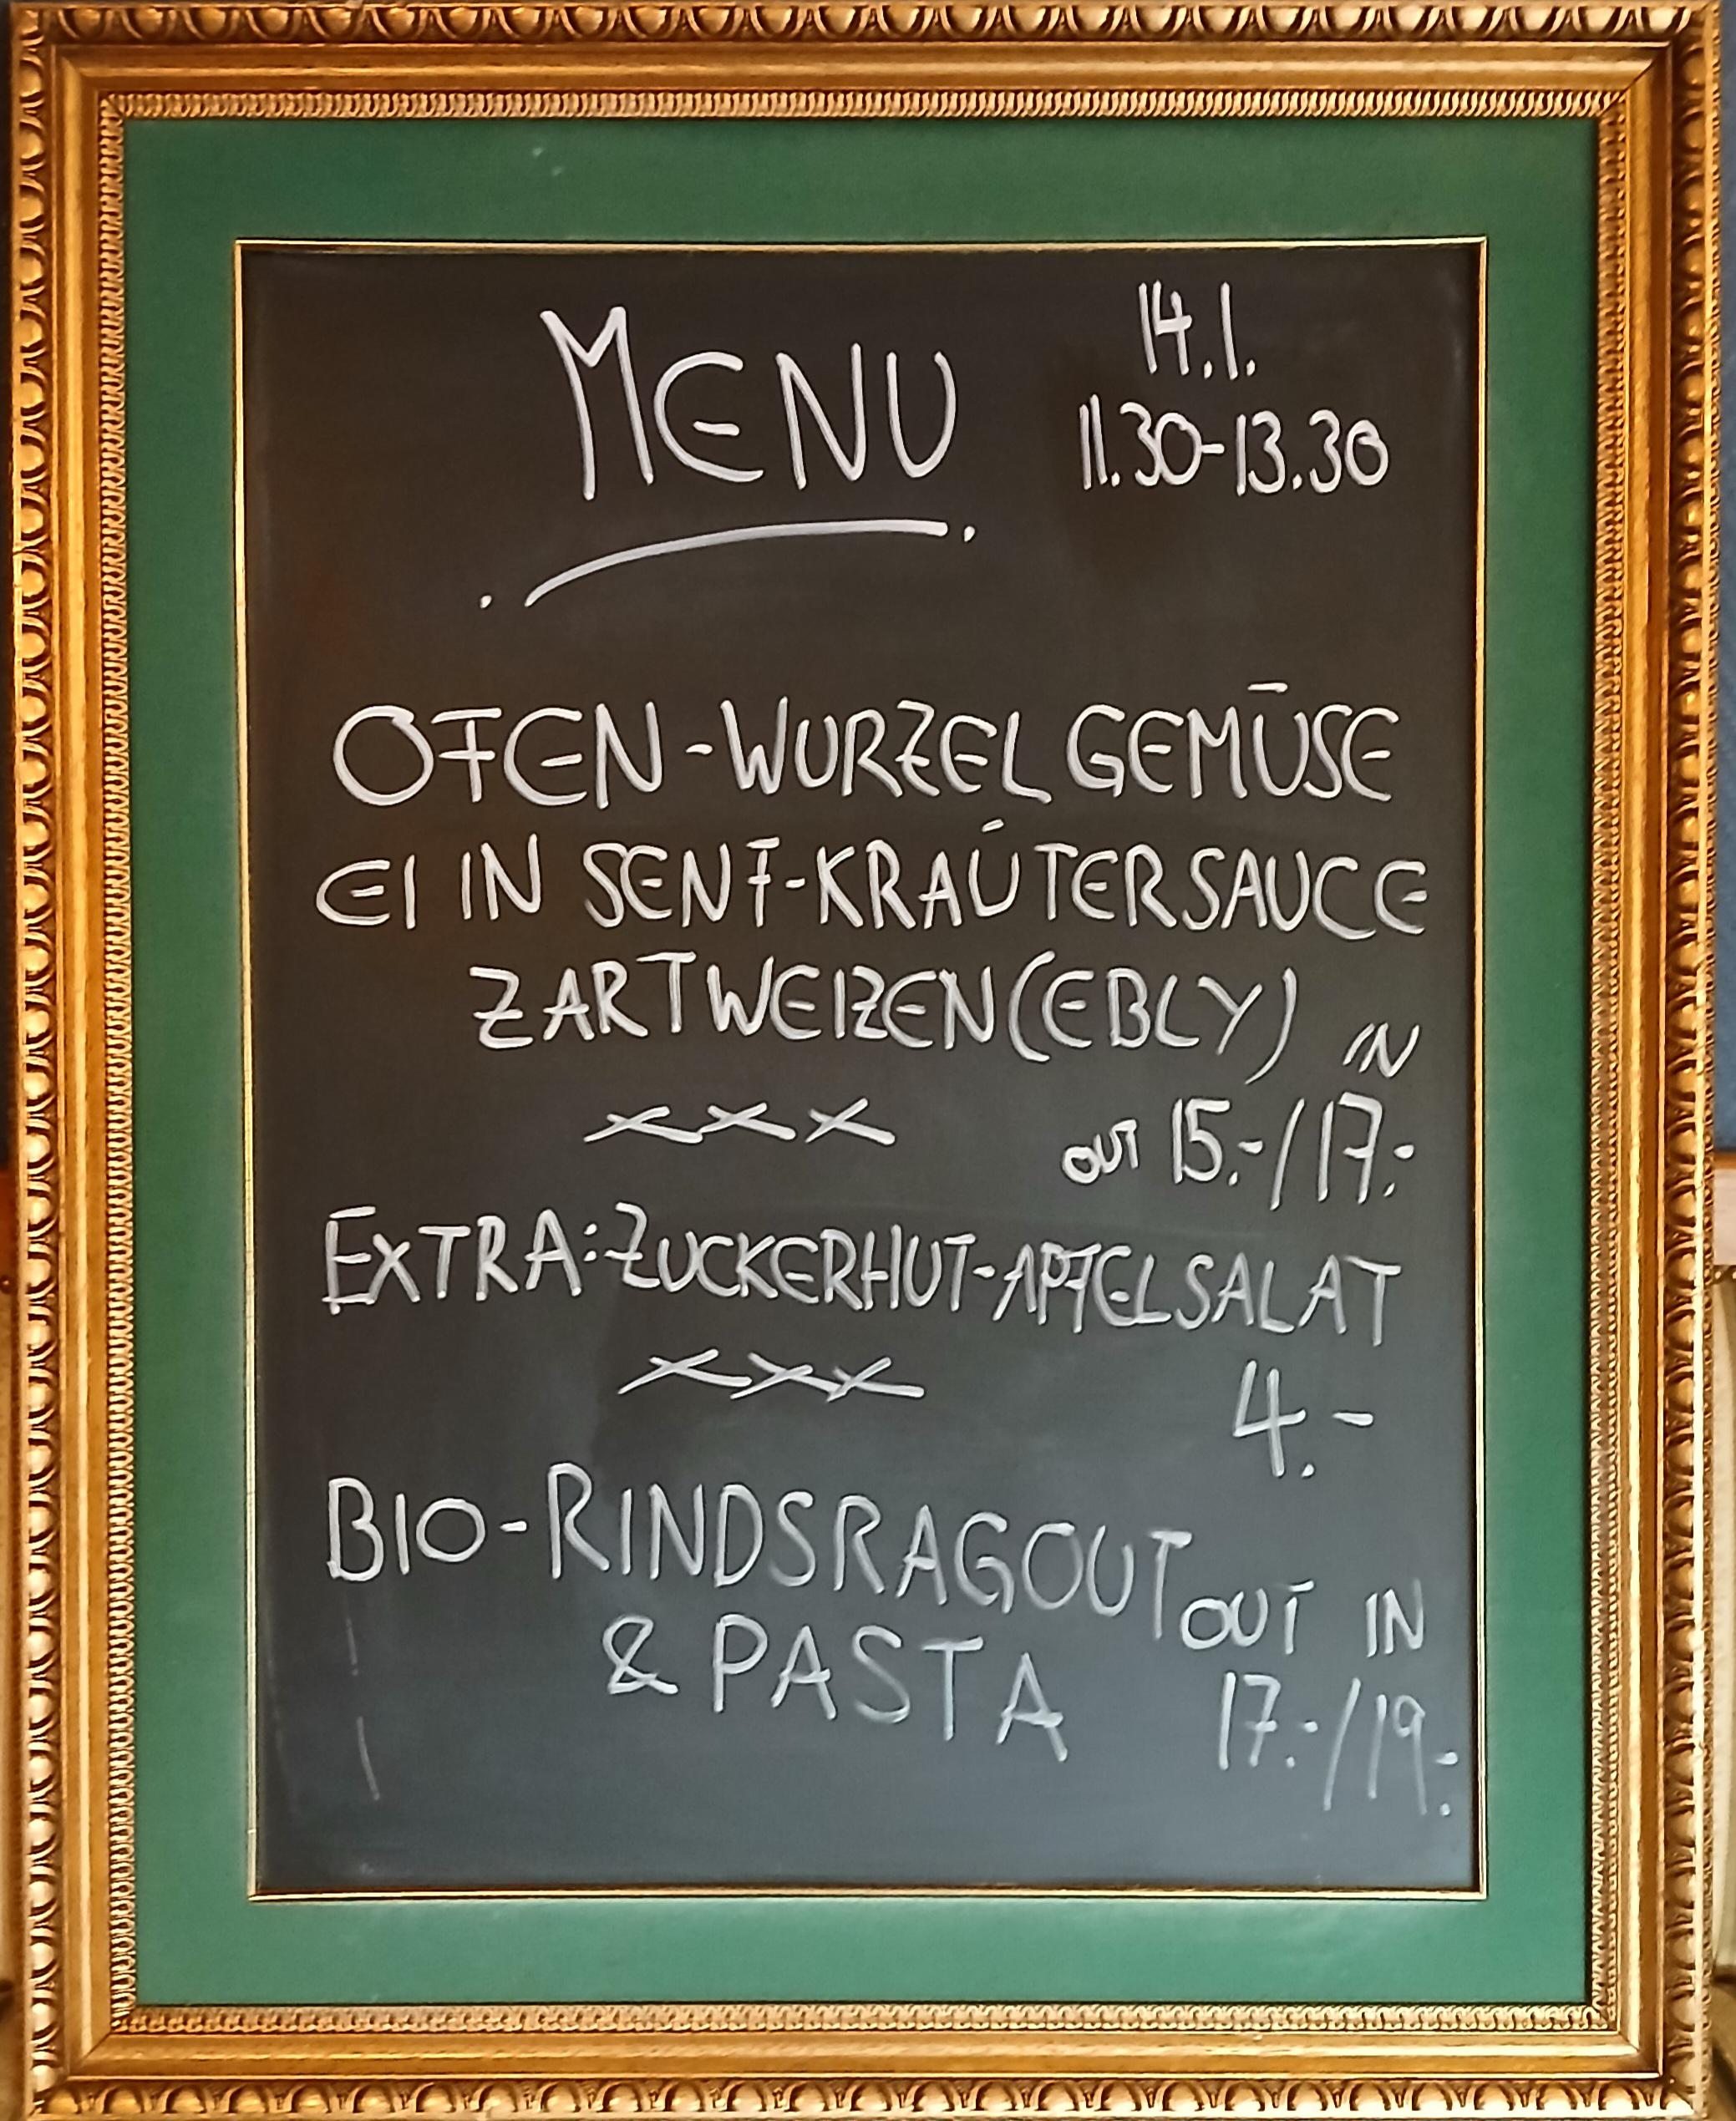 MENU
14.1.
11.30-13.30
OFEN-WURZELGEMÜSE
EI IN SENF-KRÄUTERSAUCE
ZARTWEIZEN (EBLY)
IN
xxx
OUT 15.-/17.-
EXTRA: ZUCKERHUT-APFELSALAT
xxx
4.-
BIO-RINDSRAGOUT
OUT IN
& PASTA
17.-/19.-